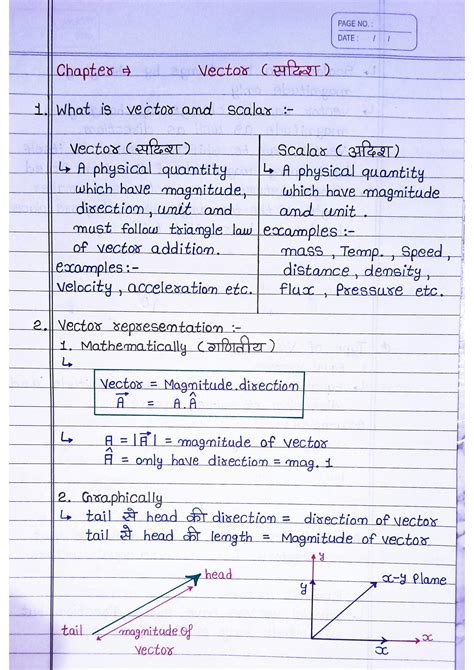 PAGE NO. :
DATE : / /
Chapter ⇒ Vector (सदिश)
1. What is vector and scalar :-
Vector (सदिश)
↳ A physical quantity
which have magnitude,
direction, unit and
must follow triangle law
of vector addition.
examples:-
velocity, acceleration etc.
Scalar (अदिश)
↳ A physical quantity
which have magnitude
and unit.
examples:-
mass, Temp., Speed,
distance, density,
flux, Pressure etc.
2. Vector representation :-
1. Mathematically (गणितीय)
↳
Vector = Magnitude.direction
A⃗ = A.Â
↳ A = |A⃗| = magnitude of vector
Â = only have direction = mag. 1
2. Graphically
↳ tail से head की direction = direction of vector
tail से head की length = Magnitude of vector
head
tail
magnitude of
vector
y
y
x-y Plane
x
x